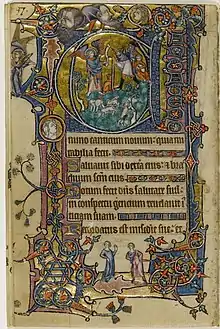 mino canticum nouum: quia mi
rabilia fecit.
Saluauit sibi dextera eius: & bra
chium scm eius.
Notum fecit dns salutare suum
in conspectu gentium reuelauit
iusticiam suam.
Recordatus est misicordie sue et